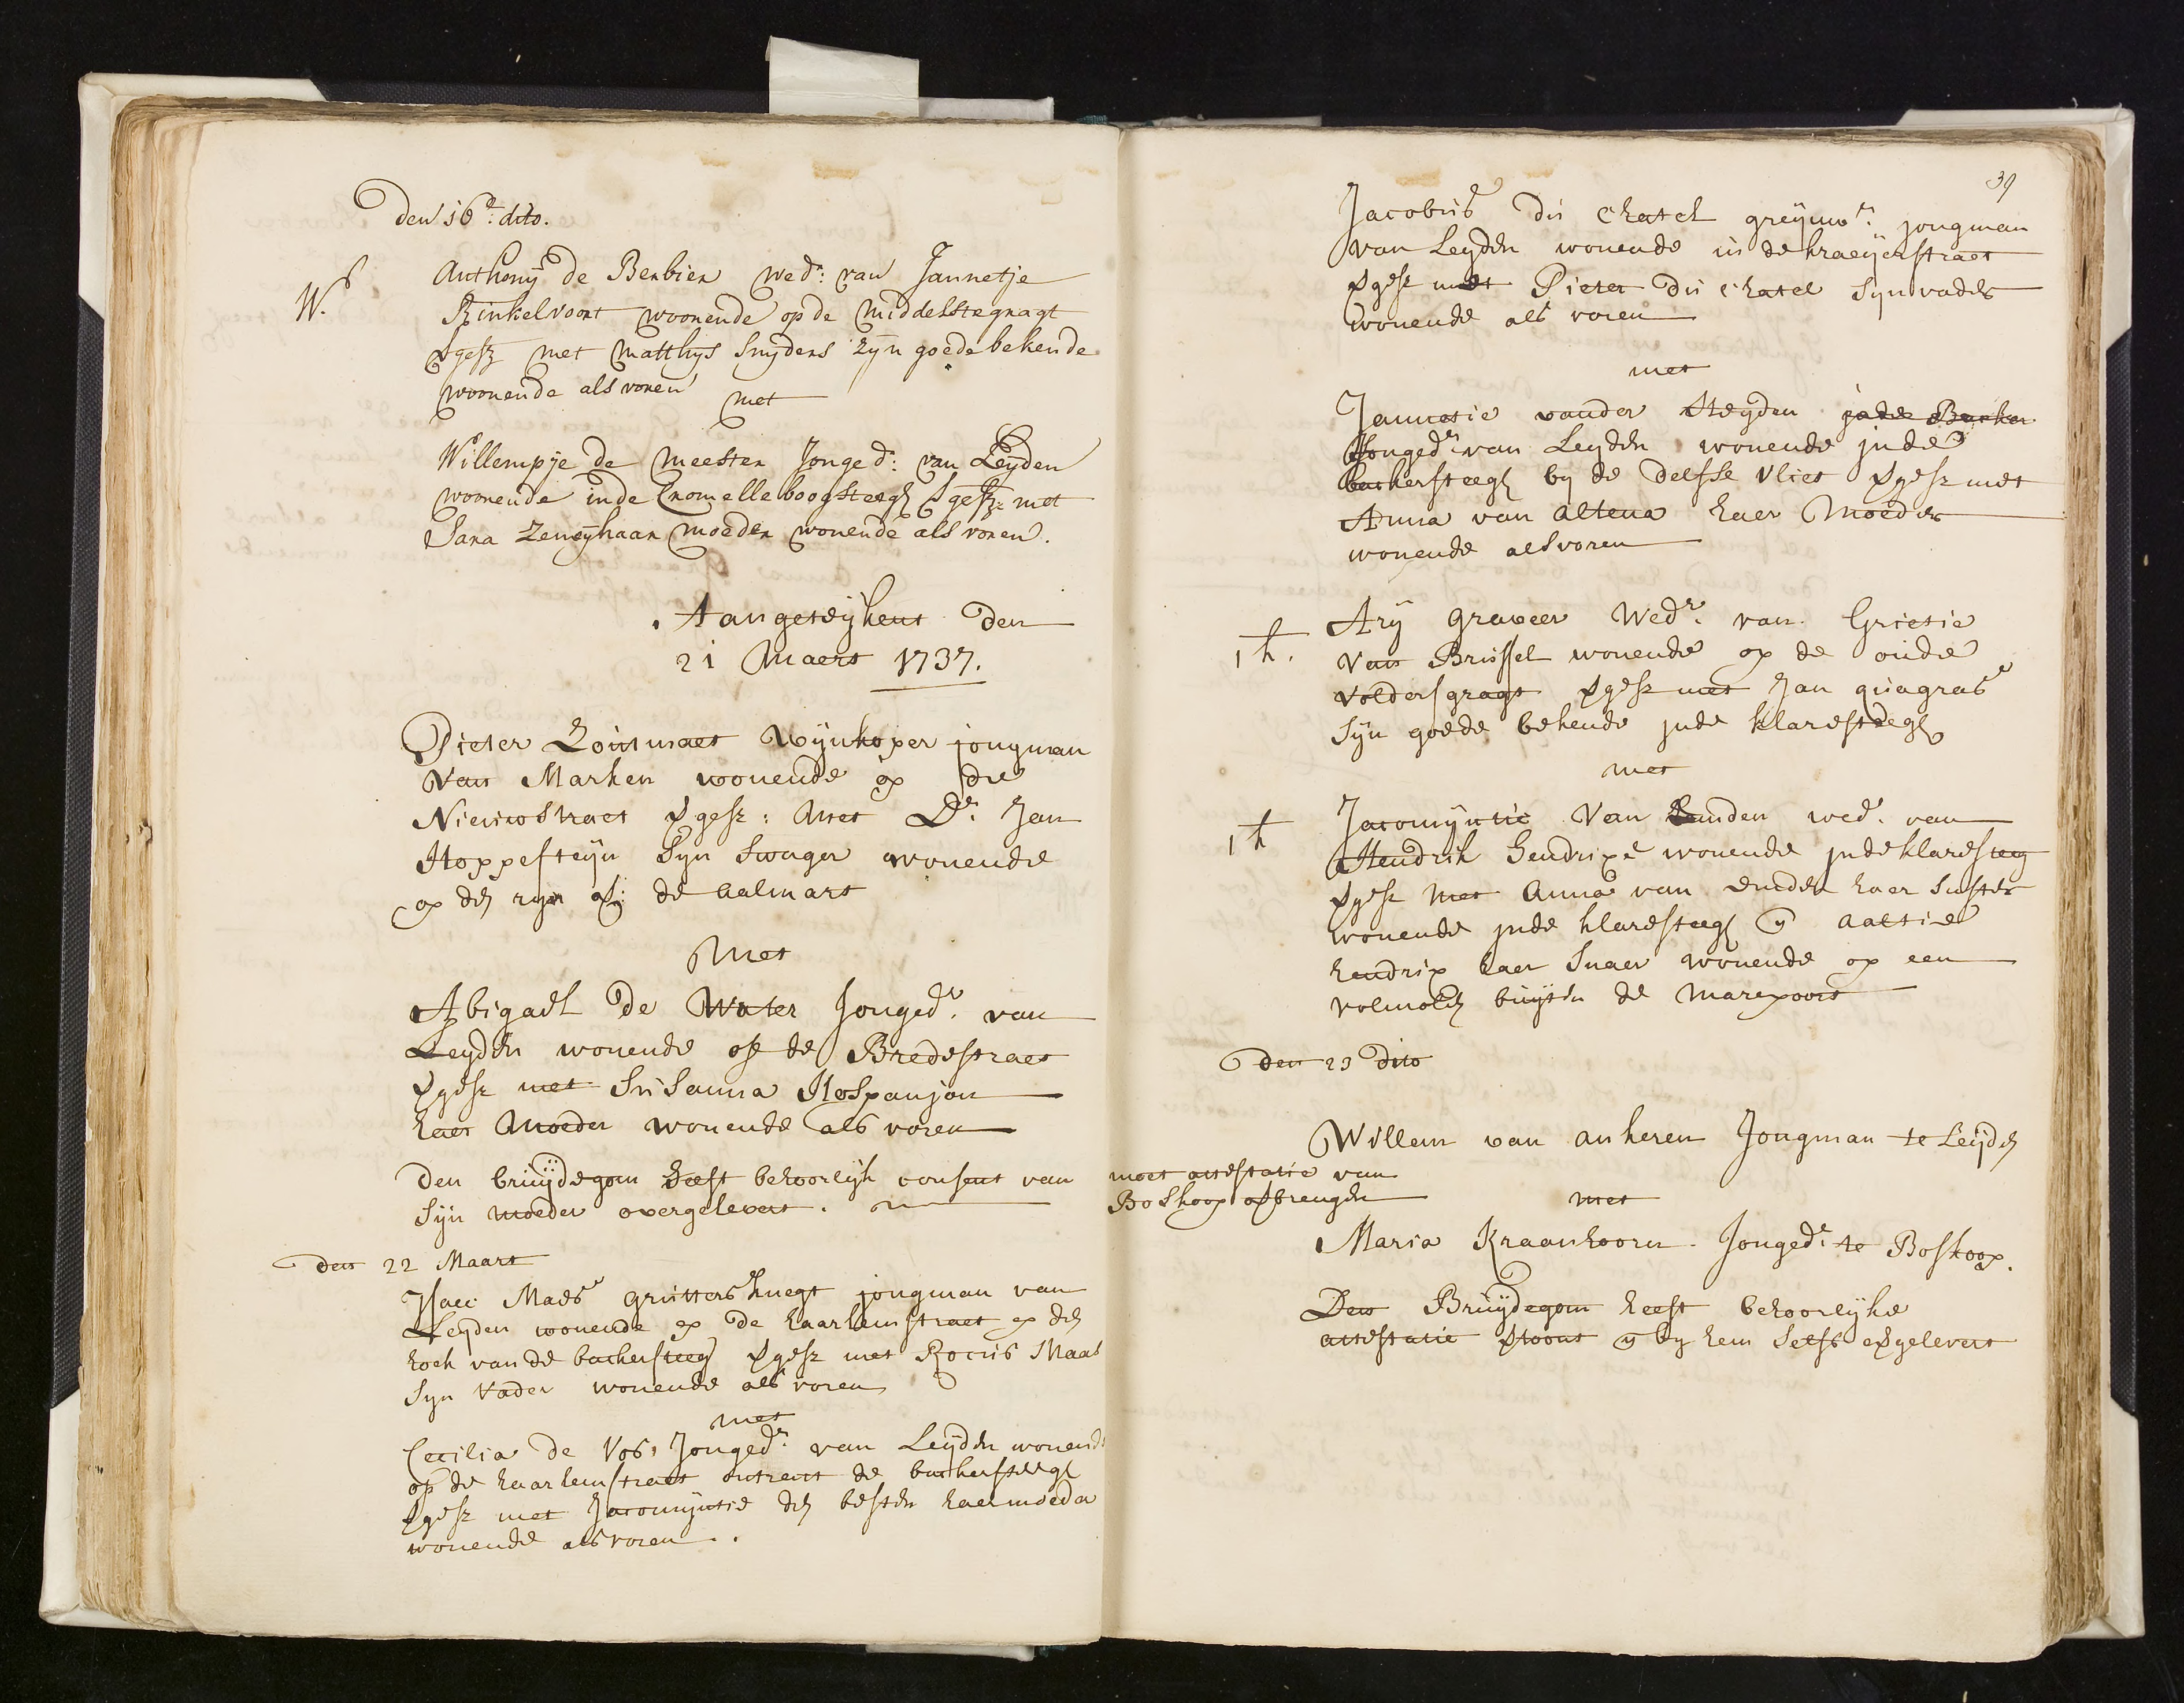 Den 16e: dito.
W.
Anthony de Berbier wed:r van Jannetje
Rinkelvoort woonende op de Middelstegragt
vgesz met Matthys Snyders zyn goede bekende
woonende als voren
met
Willempje de Meester Jonge d: van Leyden
woonende inde Cromelleboogsteegh vgesz: met
Sara moeder wonende als voren.
Aangeteijkent den
21 Maert 1737.
Pieter Zoutmaet Wijnkoper jongman
Van Marken wonende op de
Nieuwstraet vgesz: Met Dr. Jan
Hoppesteyn Syn Swager wonende
op den ryn de aalmart
Met
Abigael de Water Jonged:r van
Leyden wonende op de Bredestraet
vgesz met Susanna Hospanjon
haer Moeder wonende als voren
den bruijdegom heeft behoorlijk consent van
Syn moeder overgelevert.
den 22 Maart
Isacc Maes grutters knegt jongman van
Leyden wonende op de haarlemstraet op den
hoek van de backersteeg vgesz met Rocus Maas
Syn Vader wonende als voren
met
Cecilia de Vos, Jonged:r van Leyden wonende
op de haarlemstraet ontrent de backersteegh
vgesz met Jacomyntie den besten haer moeder
wonende als voren.
39
Jacobus du Chatel greynwr: jongman
van Leyden wonende in de kraeyerstraet
vgesz met Pieter du Chatel Syn vader
wonende als voren
met
Jannetie vander Heyden jnde Backer
Jonged:r van Leyden wonende jnde
backersteegh by de Delfse Vliet vgesz met
Anna van Altena haer Moeder
wonende als voren
1 h.
Ary Graveer Wed:r van Grietie
Van Brussel wonende op de oude
voldersgragt vgesz met Jan quagras
Syn goede bekende jnde klaresteegh
met
1 h
Jacomyntie Van Emden wed. van
Hendrik Hendrixe wonende jnde klaresteeg
vgesz met Anna van Emden haer Suster
wonende jnde klaresteegh en aaltie
hendrix haer Snaer wonende op een
volmolen buijten de Marepoort
den 23 dito
Willem van ankeren Jongman te Leyden
moet attestatie van
Boskoop opbrengen
met
Maria Kraanhoorn Jonged:r te Boskoop.
Den Bruijdegom heeft behoorlijke
attestatie vtoont en by hem Selfs opgelevert